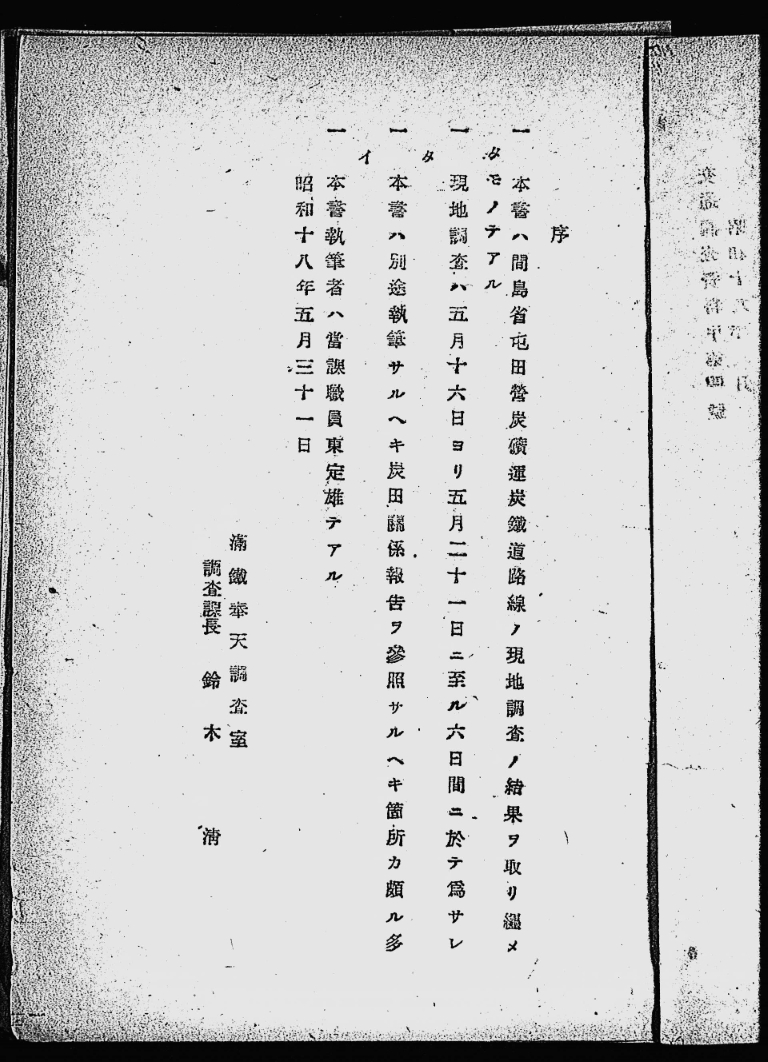 序
一 本書ハ間島省屯田營炭礦運炭鐵道路線ノ現地調査ノ結果ヲ取リ纒メ
タモノテアル
一 現地調査ハ五月十六日ヨリ五月二十一日ニ至ル六日間ニ於テ爲サレ
タ
一 本書ハ別途執筆サルヘキ炭田關係報告ヲ參照サルヘキ箇所カ頗ル多
イ
一 本書執筆者ハ當課職員東定雄テアル
昭和十八年五月三十一日
滿鐵奉天調査室
調査課長 鈴木 清